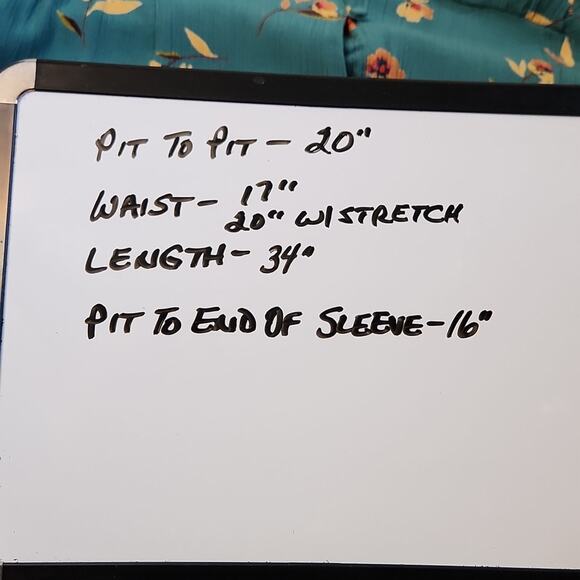 PIT TO PIT - 20"
WAIST - 17"
20" W/STRETCH
LENGTH - 34"
PIT TO END OF SLEEVE - 16"